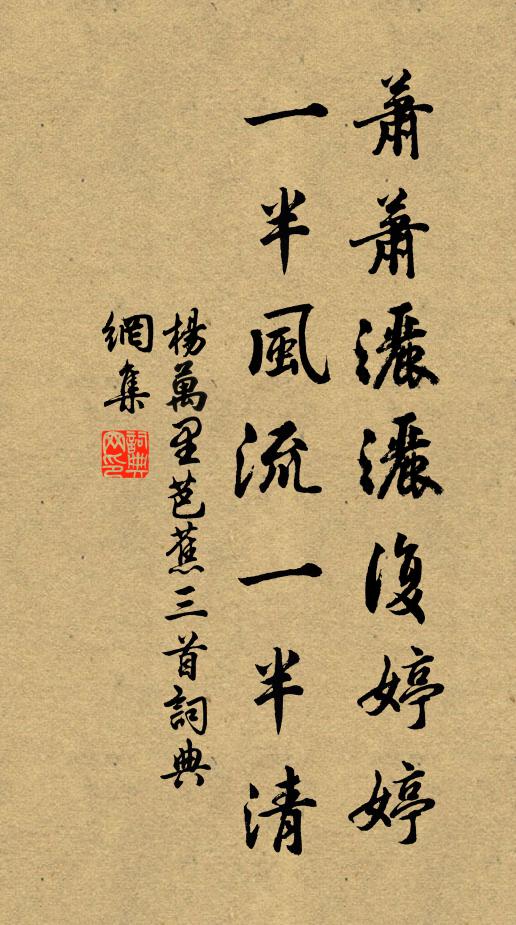 蕭蕭灑灑復婷婷
一半風流一半清
楊萬里芭蕉三首詞典
網集
詞典網印